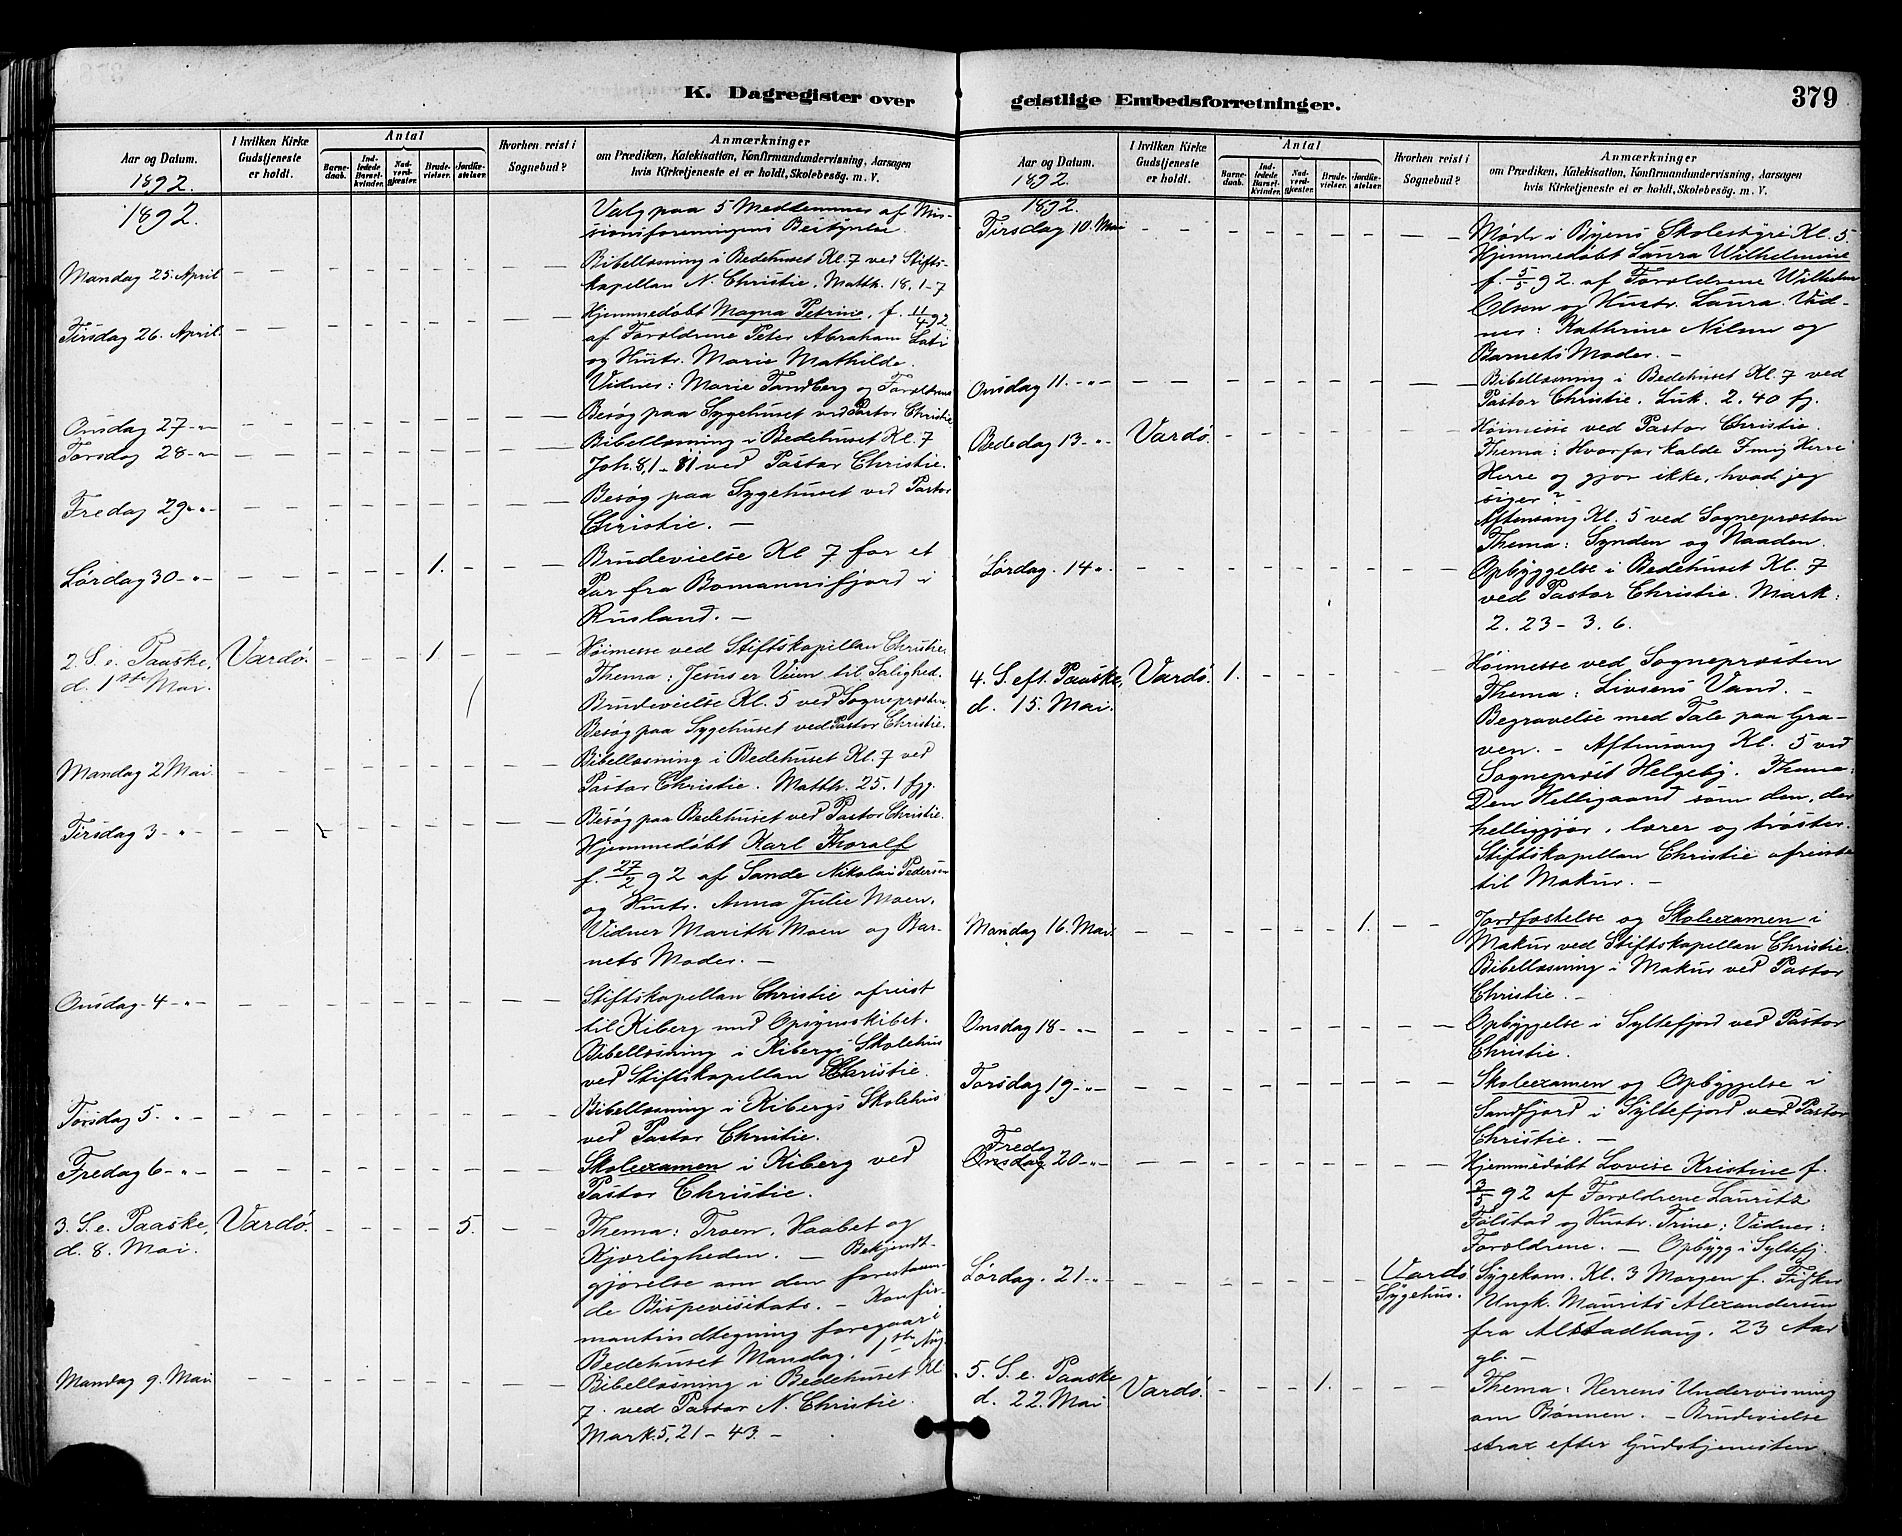 K. Dagregister over
Aar og Datum.
1892.
I hvilken Kirke
Gudstjeneste
er holdt.
Antal
Barne-
daab.
Ind-
ledede
Barsel-
kvinder.
Nad-
verd-
gjester.
Brude-
vielser.
Jordfæ-
stelser.
Hvorhen reist i
Sognebud?
Anmærkninger
om Prædiken, Katekisation, Konfirmandundervisning, Aarsagen
hvis Kirketjeneste ei er holdt, Skolebesøg. m. V.
1892.
Valg paa 5 Medlemmer af Mis-
sionsforeningens Bestyrelse.
Mandag 25. April
Bibellæsning i Bedehuset Kl. 7 ved Stifts-
kapellan N. Christie, Matth. 18, 1-7
Tirsdag 26. April.
Hjemmedøbt Magna Petrine, f. 11/4 92
af Forældrene Peter Abraham
og Hustr. Marie Mathilde.
Vidner: Marie Tandberg og Forældrene
Onsdag 27 -"-
Besøg paa Sygehuset ved Pastor Christie
Torsdag 28 -"-
Bibellæsning i Bedehuset Kl. 7
Joh. 8, 1-11 ved Pastor Christie.
Fredag 29 "-
Besøg paa Sygehuset ved Pastor
Christie. -
Lørdag 30 -"-
1.
Brudevielse Kl 7 for et
Par fra Bomannsfjord i
Rusland. -
2. S. e. Paaske,
d. 1ste Mai.
Vardø.
1.
Høimesse ved Stiftskapellan Christie.
Thema: Jesus er Veien til Salighed.
Brudevielse Kl. 5 ved Sognepræsten
Besøg paa Sygehuset ved Pastor Christie.
Mandag 2 Mai.
Bibellæsning i Bedehuset Kl. 7 ved
Pastor Christie. Matth. 25. 1 fgg.
Tirsdag 3 -"-
Besøg paa Bedehuset ved Pastor Christie.
Hjemmedøbt Karl Thoralf
f. 27/2 92 af Sande Nikolai Pedersen
og Hustr. Anna Julie Moen.
Vidner Marith Moen og Bar-
nets Moder. -
Onsdag 4 -"-
Stiftskapellan Christie afreist
til Kiberg med Opsynsskibet.
Bibellæsning i Kibergs Skolehus
ved Stiftskapellan Christie.
Torsdag 5. -"-
Bibellæsning i Kibergs Skolehus
ved Pastor Christie.
Fredag 6 -"-
Skoleexamen i Kiberg ved
Pastor Christie.
3. S. e. Paaske,
d. 8. Mai.
Vardø.
5.
Thema: Troen, Haabet og
Kjærligheden. - Bekjendt-
gjørelse om den forestaaen-
de Bispevisitats. - Konfir-
mantindtegning foregaar i
Bedehuset Mandag, 1ste Aug.
Mandag 9. Mai.
Bibellæsning i Bedehuset Kl.
7. ved Pastor N. Christie.
Mark. 5, 21 - 43. -
geistlige Embedsforretninger.
379
Aar og Datum.
1892.
I hvilken Kirke
Gudstjeneste
er holdt.
Antal
Barne-
daab.
Ind-
ledede
Barsel-
kvinder.
Nad-
verd-
gjester.
Brude-
vielser.
Jordfæ-
stelser.
Hvorhen reist i
Sognebud?
Anmærkninger
om Prædiken, Katekisation, Konfirmandundervisning, Aarsagen
hvis Kirketjeneste ei er holdt, Skolebesøg. m. V.
1892.
Tirsdag 10. Mai
Møde i Byens Skolestyre Kl. 5.
Hjemmedøbt Laura Wilhelmine
f. 5/5 92. af Forældrene Wilhelm
Olsen og Hustr. Laura. Vid-
ner: Kathrine Nilsen og
Barnets Moder. -
Onsdag 11. -"-
Bibellæsning i Bedehuset Kl. 7 ved
Pastor Christie. Luk. 2. 40 fg.
Bededag 13 -"-
Vardø.
Høimesse ved Pastor Christie.
Thema: Hvorfor kalde I mig Herre
Herre og gjør ikke, hvad jeg
siger?
Aftensang Kl. 5 ved Sognepræsten
Thema: Synden og Naaden.
Lørdag. 14 "-
Opbyggelse i Bedehuset Kl. 7
ved Pastor Christie. Mark:
2. 23 - 3. 6.
4. S. eft. Paaske,
d. 15. Mai.
Vardø.
1.
Høimesse ved Sognepræsten
Thema: Livsens Vand. -
Begravelse med Tale paa Gra-
ven. - Aftensang Kl. 5 ved
Sogneprest Helgeby. Thema:
Den Helligaand som den, der
helliggjør, lærer og trøster.
Stiftskapellan Christie afreiste
til Makur. -
Mandag 16. Mai.
1.
Jordfæstelse og Skoleexamen i
Makur ved Stiftskapellan Christie.
Bibellæsning i Makur ved Pastor
Christie. -
Onsdag 18 -"-
Opbyggelse i Syltefjord ved Pastor
Christie.
Torsdag 19 -"-
Skoleexamen og Opbyggelse i
Sandfjord i Syltefjord ved Pastor
Christie. -
Fredag
Onsdag 20 -"-
Hjemmedøbt Lovise Kristine f.
3/5 92 af Forældrene Lauritz
Følstad og Hustr. Trine; Vidner:
Forældrene. - Opbygg i Syltefj.
Lørdag. 21 -"-
Vardø
Sygehus.
Sygekom. Kl. 3 Morgen f. Fisker
Ungk. Maurits Alexandersen
fra Alstadhaug. 23 Aar
gl. -
5. S. e. Paaske
d. 22. Mai
Vardø.
1.
Thema: Herrens Undervisning
om Bønnen. - Brudevielse
strax efter Gudstjenesten.